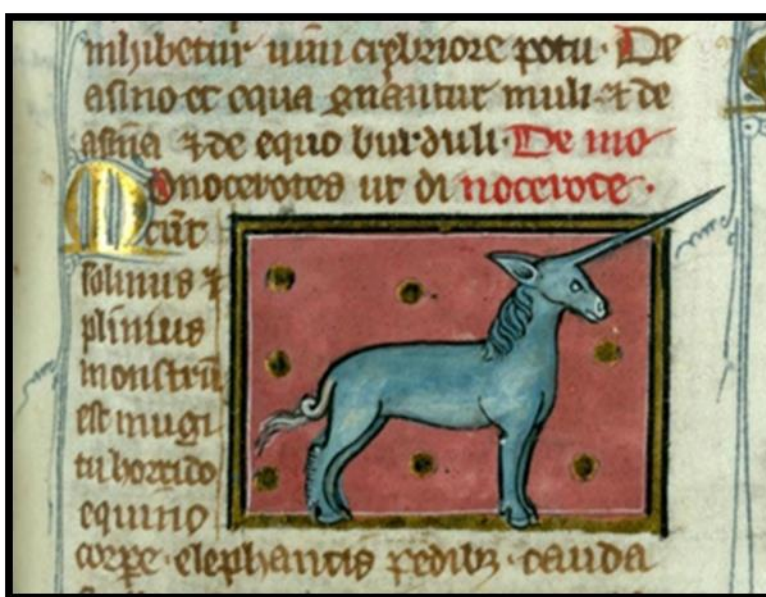 inhibetur uini crebriore potu. De
asino et equa gnantur muli ⁊ de
asina ⁊ de equo burduli. De mo
Monocerotes ut di nocerote.
cūt
solinus ⁊
plinius
monstrū
est mugi
tu horrido
equino
corpe. elephantis pedibꝫ. cauda